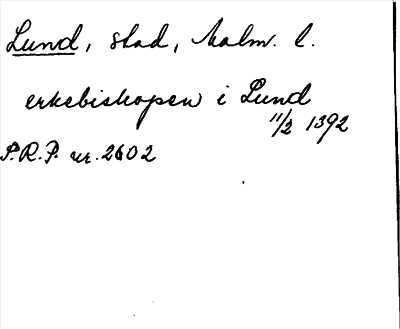 Lund, stad, Malm. l.
erkebiskopen i Lund
11/2 1392
P.R.P. nr. 2602